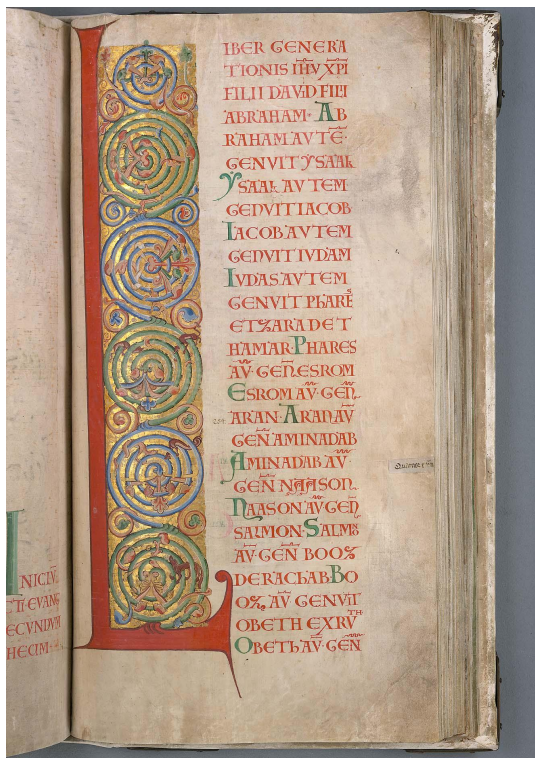 INICIV̄
TI·EVANG
ECVNDVM
HEVM·
L
IBER GENERA
TIONIS IH̄V XP̄I
FILII DAVID FILII
ABRAHAM· AB
RAHAM AVTĒ·
GENVIT YSAAK
YSAAK AVTEM
GENVIT IACOB
IACOB AVTEM
GENVIT IVDAM
IVDAS AVTEM
GENVIT PHARĒ
ET ZARA DE T
HAMAR· PHARES
AV̄· GEN̄ ESROM
ESROM AV̄· GEN̄·
ARAN· ARAN AV̄
GEN̄ AMINADAB
AMINADAB AV̄·
GEN̄ NAASON·
NAASON AV̄ GEN̄
SALMON· SALMO
AV̄· GEN̄ BOOZ
DE RACHAB· BO
OZ· AV̄ GENVIT
OBETH EX RVTH
OBETH AV̄· GEN̄